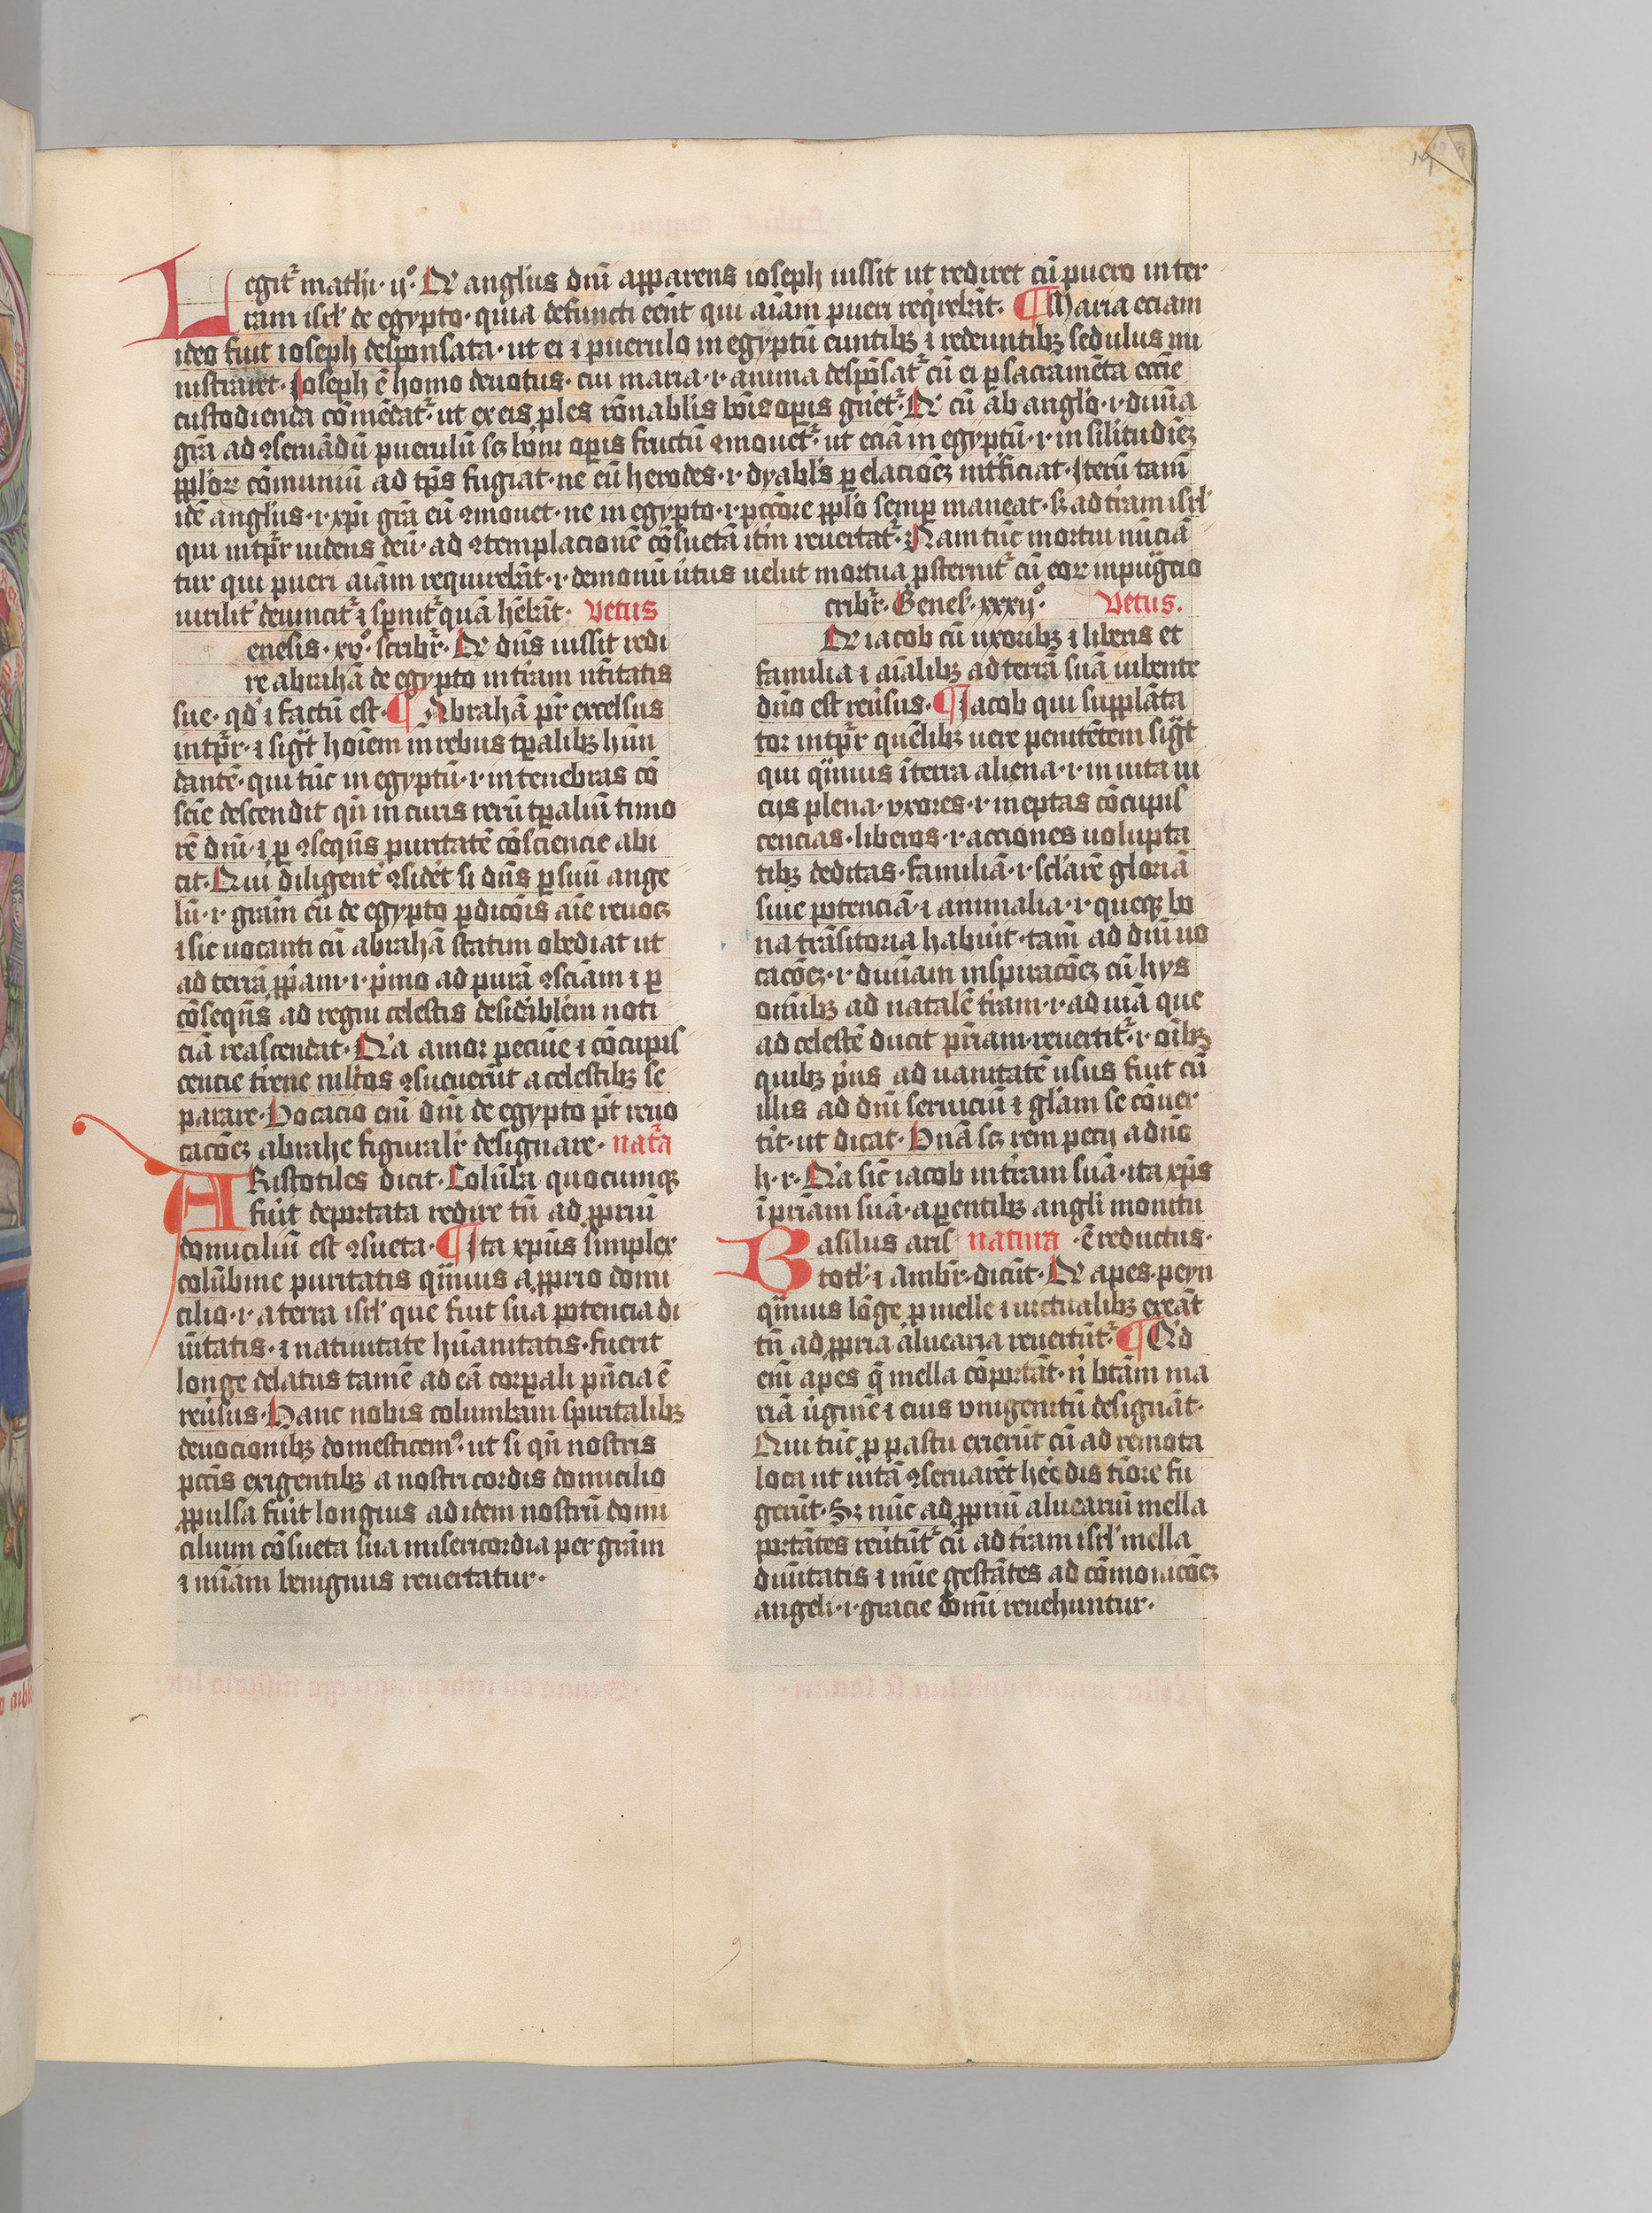 Legitr̄ mathi · ij° · Qd̕ angl̕us dn̄i apparens ioseph iussit ut rediret cū puero in ter
ram isrl̕ de egypto · quia defuncti eēnt qui aīam pueri req̇rebāt · ¶ Maria eciam
ideo fuit ioseph desponsata · ut ei ⁊ puerulo in egyptū euntibꝫ ⁊ redeuntibꝫ sedulus mi
nistraret · Ioseph ē homo deuotus · cui maria · i · anima despōsatr̄ cū ei ꝑ sacramēta ecc̄ie
custodienda cōmēdatr̄ · ut ex eis ꝓles rōnabl̕is boīs oꝑis gn̕etr̄ · Qd̕ cū ab angl̕o · i · diuīa
grā ad ꝯseruādū puerulū scꝫ boni oꝑis fructū ꝯmouetr̄ · ut eciā in egyptū · i · in silitudīeꝫ
ppl̕oꝝ cōmuniū ad tp̄s fugiat · ne eū herodes · i · dyabl̕s ꝑ elacioēꝫ int̕ficiat · Iterū tam̄
idē angl̕us · i · xp̄i grā eū ꝯmouet · ne in egypto · i · pcc̄ore ppl̕o semꝑ maneat · sꝫ ad t̕ram isrl̕
qui intp̄r uidens deū · ad ꝯtemplacionē cōsuetā itm̄ reuertatr̄ · Nam tūc mortui nūciā
tur qui pueri aīam requirebāt · i · demonū uīrtus uelut mortua ꝓsternitr̄ cū eoꝝ inpugc̄io
uirilit̕ deuincitr̄ ⁊ sp̄nitr̄ quā hēbāt · Vetus
enesis · xv° · scribr̄ · Qd̕ dn̄s iussit redi
re abrahā de egypto in t̕ram ūtilitatis
sue · qd̕ ⁊ factū est · ¶ Abrahā pr̄ excelsus
intp̄r · ⁊ sigt̄ hoīem in rebus tꝑalibꝫ hūn
dantē · qui tūc in egyptū · i · in tenebras cō
scīe descendit qn̄ in curis rerū tꝑaliū timo
rē dn̄i · ⁊ ꝑ ꝯseq̄ns puritatē cōsciencie abi
cit · Qui diligent̕ ꝯsidet̕ si dn̄s ꝑ suū ange
lū · i · grām eū de egypto ꝑdicōis aīe reuocꝫ
⁊ sic uocanti cū abrahā statim obediat ut
ad terrā ꝓp̄am · i · p̄mo ad purā ꝯsciām ⁊ ꝑ
cōseq̄ns ad regni celestis desidābl̕em noti
ciā reascendat · Qa amor pecuīe ⁊ cōcupis
cencie t̕rene mlt̕os ꝯsueuerūt a celestibꝫ se
parare · Vocacio eni dn̄i de egypto pt̄ reuo
cacōꝫ abrahe figuralr̄ designare · natr̄a
Aristotiles dicit · Colūba quocumqꝫ
fuit deportata redire tn̄ ad ꝓpriū
domiciliū est ꝯsueta · ¶ Ita xp̄us simplex
colūbine puritatis q̄mius a ꝓprio domi
cilio · i · a terra isrl̕ que fuit sua potencia di
uītatis · ⁊ natiuitate hūanitatis · fuerit
longe delatus tamē ad eā corꝑali p̄ncia ē
reūsus · Hanc nobis columbam spūtalibꝫ
deuocionibꝫ domesticemꝰ · ut si qn̄ nostris
pcc̄is exigentibꝫ a nostri cordis domicilio
ꝓpulsa fuit longius ad idem nostrū domi
cilium cōsueta sua misericordia per grām
⁊ mīam benignus reuertatur ·
cribr̄ · Genes · xxxij° · Vetus .
Qd̕ iacob cū uxoribꝫ ⁊ liberis et
familia ⁊ aīalibꝫ ad terrā suā iubente
dn̄o est reūsus · ¶ Iacob qui supplāta
tor intp̄r quēlibꝫ uere penitētem sigt̄
qui q̄mius ī terra aliena · i · in uita ui
cijs plena · uxores · i · ineptas cōcupis
cencias · liberos · i · acciones uolupta
tibꝫ deditas · familiā · i · sclarē gloriā
siue potenciā · ⁊ animalia · i · queqꝫ bo
na trāsitoria habuit · tam̄ ad dn̄i uo
cacōꝫ · i · diuinam inspiracōꝫ cū hys
omībꝫ ad natalē t̕ram · i · ad uiā que
ad celestē ducit pr̄iam · reuertitr̄ · i · oībꝫ
quibꝫ p̄us ad uanitatē usus fuit cū
illis ad dn̄i seruiciū ⁊ gl̕am se cōuer
tit · ut dicat · Vnā scꝫ rem pecij a dn̄o
h · r · Qa sic̄ iacob in t̕ram suā · ita xp̄s
ī pr̄iam suā · aparentibꝫ angl̕i monitu
Basilus aris natura · ē reductus ·
totl̕ ⁊ ambr̄ · dicūt · Qd̕ apes · peyn
q̄mius lōge ꝓ melle ⁊ uictualibꝫ exeāt
tn̄ ad ꝓpria aluearia reuertūtr̄ · ¶ Qd̕
eni apes q̄ mella cōportāt · n̄ btām ma
riā ūginē ⁊ eius unigenitū designāt ·
Qui tūc ꝓ pastu exierūt cū ad remota
loca ut uitā ꝯseruarēt h̕ec̄dis t̕more fu
gerūt · Sꝫ nūc ad ꝓpriū aluearū mella
portātes reūtūtr̄ cū ad t̕ram isrl̕ mella
diuītatis ⁊ mīe gestātes ad cōmonicōꝫ
angeli · i · gracie domī reuehuntur ·